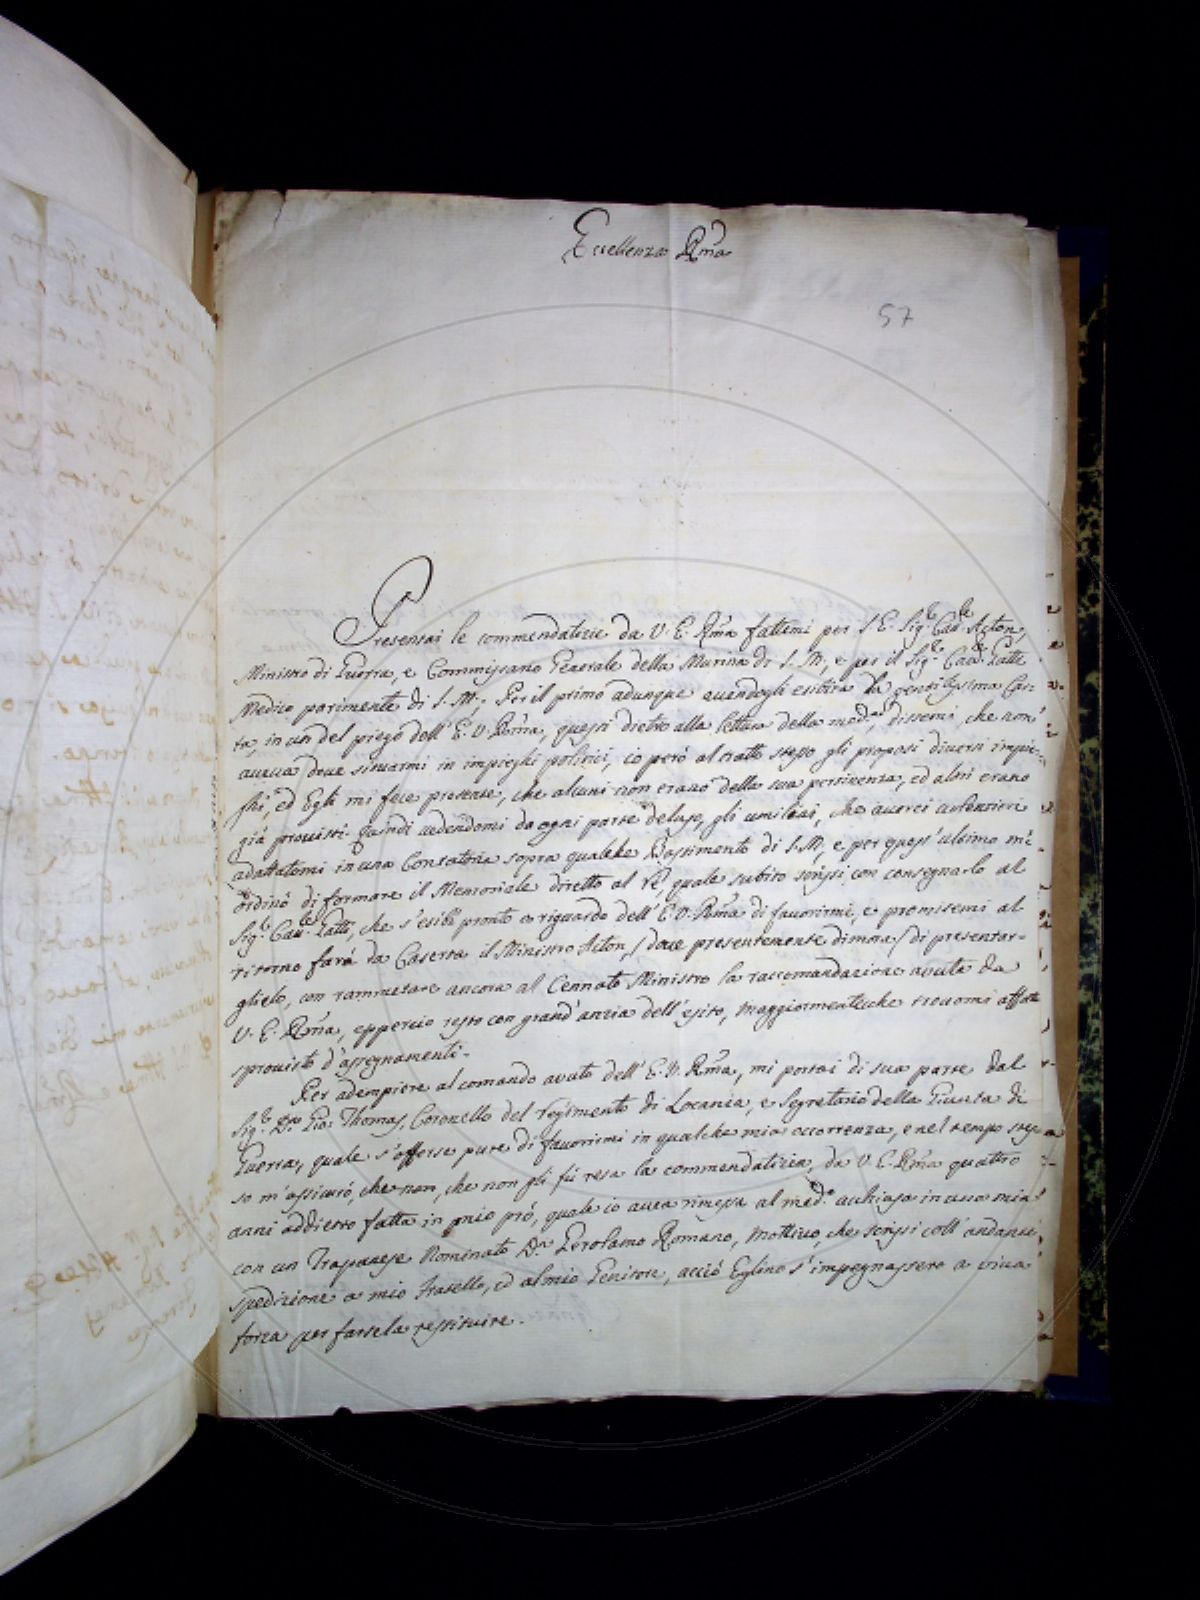 Eccellenza Rma
57
Presentai le commendatizie da V. E. Rma fattemi per S. E. Sigr. Cavre. Acton,
Ministro di Guerra, e Commissario Generale della Marina di S. M., e per il Sigr. Cavre. Gatti
Medico parimente di S. M.; Per il primo adunque avendogli esibita la gentilissima Car=
ta, in un del piego dell' E. V. Rma, questi dietro alla lettura della meda., dissemi, che non
aveva dove situarmi in impieghi politici, io però al tratto stesso gli proposi diversi impie=
ghi, ed Egli mi fece presente, che alcuni non erano della sua pertinenza, ed altri erano
già provisti. Quindi vedendomi da ogni parte deluso, gli umiliai, che averei volentieri
adattatomi in una Contatoria sopra qualche Bastimento di S. M., e per quest' ultimo m'
ordinò di formare il Memoriale diretto al Rè, quale subito scrissi con consegnarlo al
Sigr. Cavre. Gatti, che s'esibì pronto a riguardo dell' E. V. Rma di favorirmi, e promisemi al
ritorno farà da Caserta il Ministro Acton, /dove presentemente dimora/ di presentar=
glielo, con rammentare ancora al Cennato Ministro la raccomandazione avuta da
V. E. Rma, eppercio resto con grand' anzia dell' esito, maggiormentecche trovomi affatto
sprovisto d'assegnamenti.
Per adempiere al comando avuto dell' E. V. Rma, mi portai di sua parte dal
Sigr. Dn. Gio: Thomas, Coronello del regimento di Locania, e Segretario della Giunta di
Guerra, quale s'offerse pure di favorirmi in qualche mia occorrenza, e nel tempo stes
so m'assicurò, che non, che non gli fù resa la commendatizia, da V. E. Rma quattro
anni addietro fatta in mio prò, quale io avea rimessa al medo. acchiusa in una mia
con un Trapanese Nominato Dn. Gerolamo Romano, mottivo, che scrissi coll' andante
spedizione a mio Fratello, ed al mio Genitore, acciò Eglino s'impegnassero a viva
forza per farsela restituire.